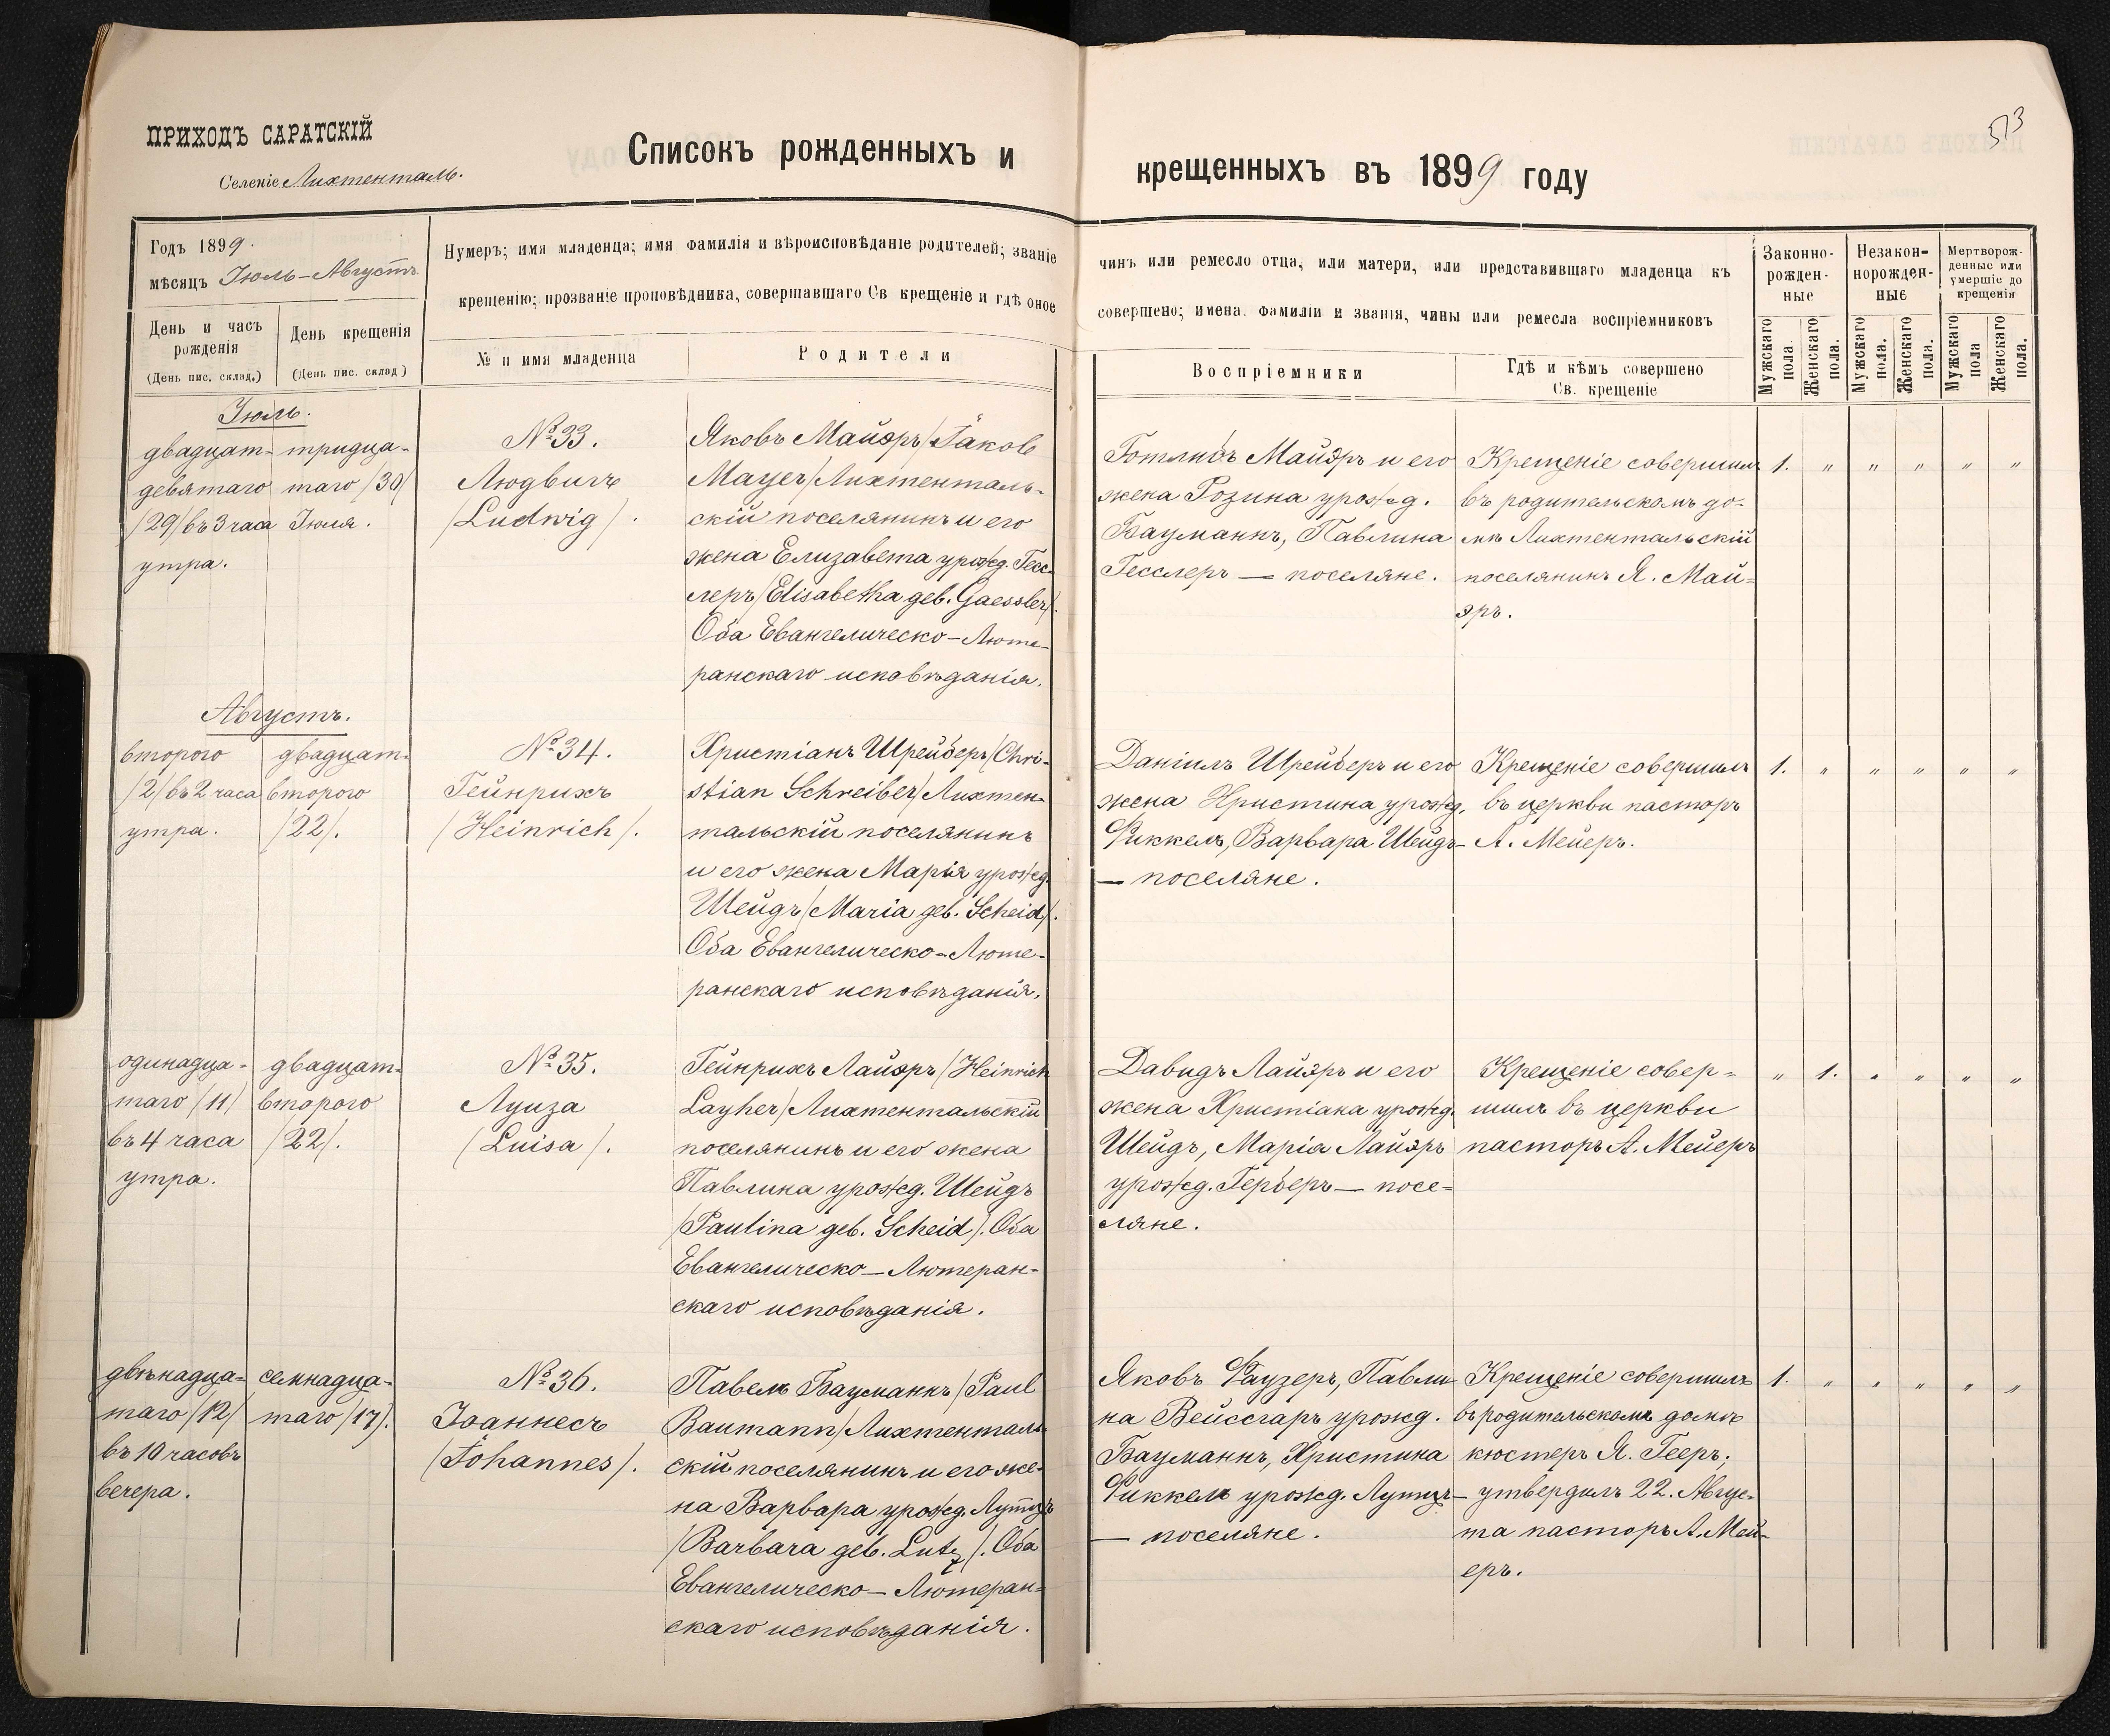 ПРИХОДЪ САРАТСКІЙ
Селеніе Лихтенталь.
Списокъ рожденныхъ и крещенныхъ въ 1899 году
513
Годъ 1899.
мѣсяцъ Іюль-Августъ
День и часъ рожденія
(День пис. склад.)
День крещенія
(День пис. склад)
Нумеръ; имя младенца; имя фамилія и вѣроисповѣданіе родителей; званіе
чинъ или ремесло отца, или матери, или представившаго младенца къ
крещенію; прозваніе проповѣдника, совершавшаго Св крещеніе и гдѣ оное
совершено; имена. фамиліи и званія, чины или ремесла воспріемниковъ
№ и имя младенца
Родители
Воспріемники
Гдѣ и кѣмъ совершено
Св. крещеніе
Законно-
рожден-
ные
Незакон-
норожден-
ные
Мертворож-
денные или
умершіе до
крещенія
Мужскаго пола.
Женскаго пола.
Мужскаго пола.
Женскаго пола.
Мужскаго пола
Женскаго пола.
Іюль.
двадцат-
девятаго
/29/ въ 3 часа
утра.
тридца-
таго /30/
Іюля.
№ 33.
Людвигъ
/Ludwig/.
Яковъ Майэръ/Jakob
Mayer/Лихтенталь-
скій поселянинъ и его
жена Елизавета урожд. Гесс-
леръ/Elisabetha geb. Gaessler/.
Оба Евангелическо-Люте-
ранскаго исповѣданія.
Готлибъ Майэръ и его
жена Розина урожд.
Бауманнъ, Павлина
Гесслеръ — поселяне.
Крещеніе совершилъ
въ родительскомъ до-
мѣ Лихтентальскій
поселянинъ Я. Май-
эръ.
1. " " " " "
Августъ.
второго
/2/ въ 2 часа
утра.
двадцат-
второго
/22/.
№ 34.
Гейнрихъ
/Heinrich/.
Христіанъ Шрейберъ/Chri-
stian Schreiber/Лихтен-
тальскій поселянинъ
и его жена Марія урожд.
Шейдъ/Maria geb. Scheid/.
Оба Евангелическо-Люте-
ранскаго исповѣданія.
Даніилъ Шрейберъ и его
жена Христина урожд.
Фиккель, Варвара Шейдъ-
— поселяне.
Крещеніе совершилъ
въ церкви пасторъ
А. Мейеръ.
1. " " " " "
одинадца-
таго /11/
въ 4 часа
утра.
двадцат-
второго
/22/.
№ 35.
Луиза
/Luisa/.
Гейнрихъ Лайэръ/Heinrich
Layher/Лихтентальскій
поселянинъ и его жена
Павлина урожд. Шейдъ
/Paulina geb. Scheid/. Оба
Евангелическо-Лютеран-
скаго исповѣданія.
Давидъ Лайэръ и его
жена Христіана урожд.
Шейдъ, Марія Лайэръ
урожд. Герберъ — посе-
ляне.
Крещеніе совер-
шилъ въ церкви
пасторъ А. Мейеръ
" 1. " " " "
двѣнадца-
таго /12/
въ 10 часовъ
вечера.
семнадца-
таго /17/.
№ 36.
Іоаннесъ
/Johannes/.
Павелъ Бауманнъ/Paul
Baumann/Лихтенталь-
скій поселянинъ и его же-
на Варвара урожд. Лутцъ
/Barbara geb. Lutz/. Оба
Евангелическо-Лютеран-
скаго исповѣданія.
Яковъ Фаузеръ, Павли-
на Вейссгаръ урожд.
Бауманнъ, Христина
Фиккель урожд. Лутцъ-
— поселяне.
Крещеніе совершилъ
въ родительскомъ домѣ
кюстеръ Я. Гееръ;
утвердилъ 22. Авгус-
та пасторъ А. Мей-
еръ.
1. " " " " "